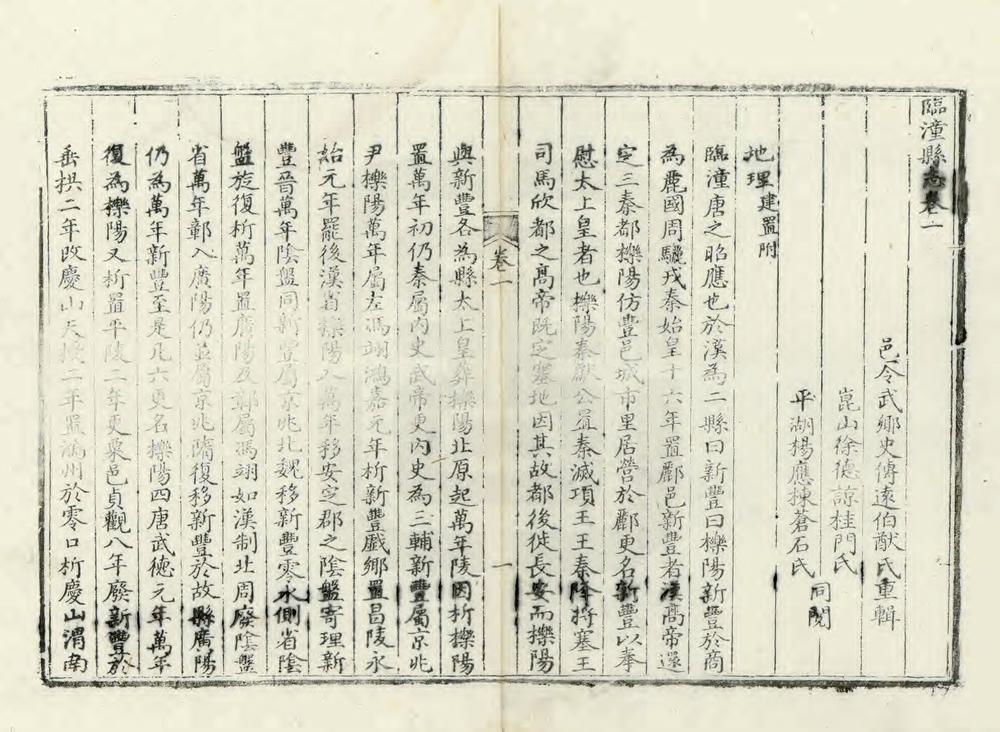 臨潼縣志卷一
邑令武鄉史傳遠伯猷氏重輯
崑山徐德諒桂門氏
同閱
平湖楊應棟蒼石氏
地理建置附
臨潼唐之昭應也於漢為二縣曰新豐曰櫟陽新豐於商
為麗國周驪戎秦始皇十六年置酈邑新豐者漢髙帝還
定三秦都櫟陽仿豐邑城市里居營於酈更名新豐以奉
慰太上皇者也櫟陽秦獻公置秦滅項王王秦降將塞王
司馬欣都之髙帝既定塞地因其故都後徙長安而櫟陽
卷一
一
與新豐各為縣太上皇葬櫟陽北原起萬年陵因析櫟陽
置萬年初仍秦屬內史武帝更內史為三輔新豐屬京兆
尹櫟陽萬年屬左馮翊鴻嘉元年析新豐戲鄉置昌陵永
始元年罷後漢省櫟陽入萬年移安定郡之陰盤寄理新
豐晉萬年陰盤同新豐屬京兆北魏移新豐零水側省陰
盤旋復析萬年置廣陽及鄣屬馮翊如漢制北周廢陰盤
省萬年鄣入廣陽仍並屬京兆隋復移新豐於故縣廣陽
仍為萬年新豐至是凡六更名櫟陽四唐武德元年萬年
復為櫟陽又析置平陵二年更粟邑貞觀八年廢新豐於
垂拱二年改慶山天授二年置鴻州於零口析慶山渭南